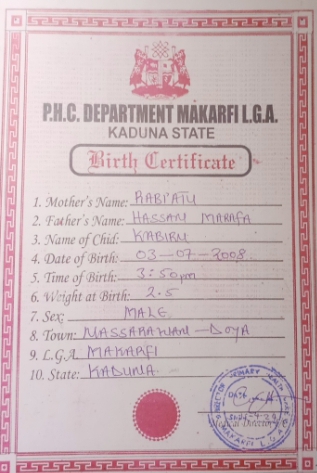 P.H.C. DEPARTMENT MAKARFI L.G.A.
KADUNA STATE
Birth Certificate
1. Mother's Name: RABI'ATU
2. Father's Name: HASSAN MARAFA
3. Name of Chid: KABIRU
4. Date of Birth: 03-07-2008
5. Time of Birth: 3:50pm
6. Weight at Birth: 2.5
7. Sex: MALE
8. Town: NASSARAWAN-DOYA
9. L.G.A. MAKARFI
10. State: KADUNA
Medical Director
MAKARFI L.G.